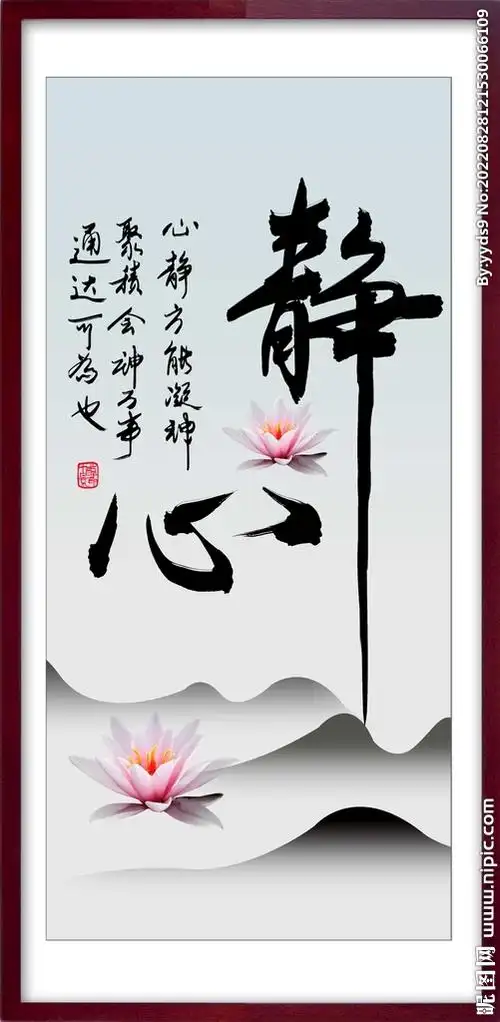 静心
心静方能凝神
聚精会神万事
通达可为也
By:yyds9 No:20220828121530066109
昵图网 www.nipic.com